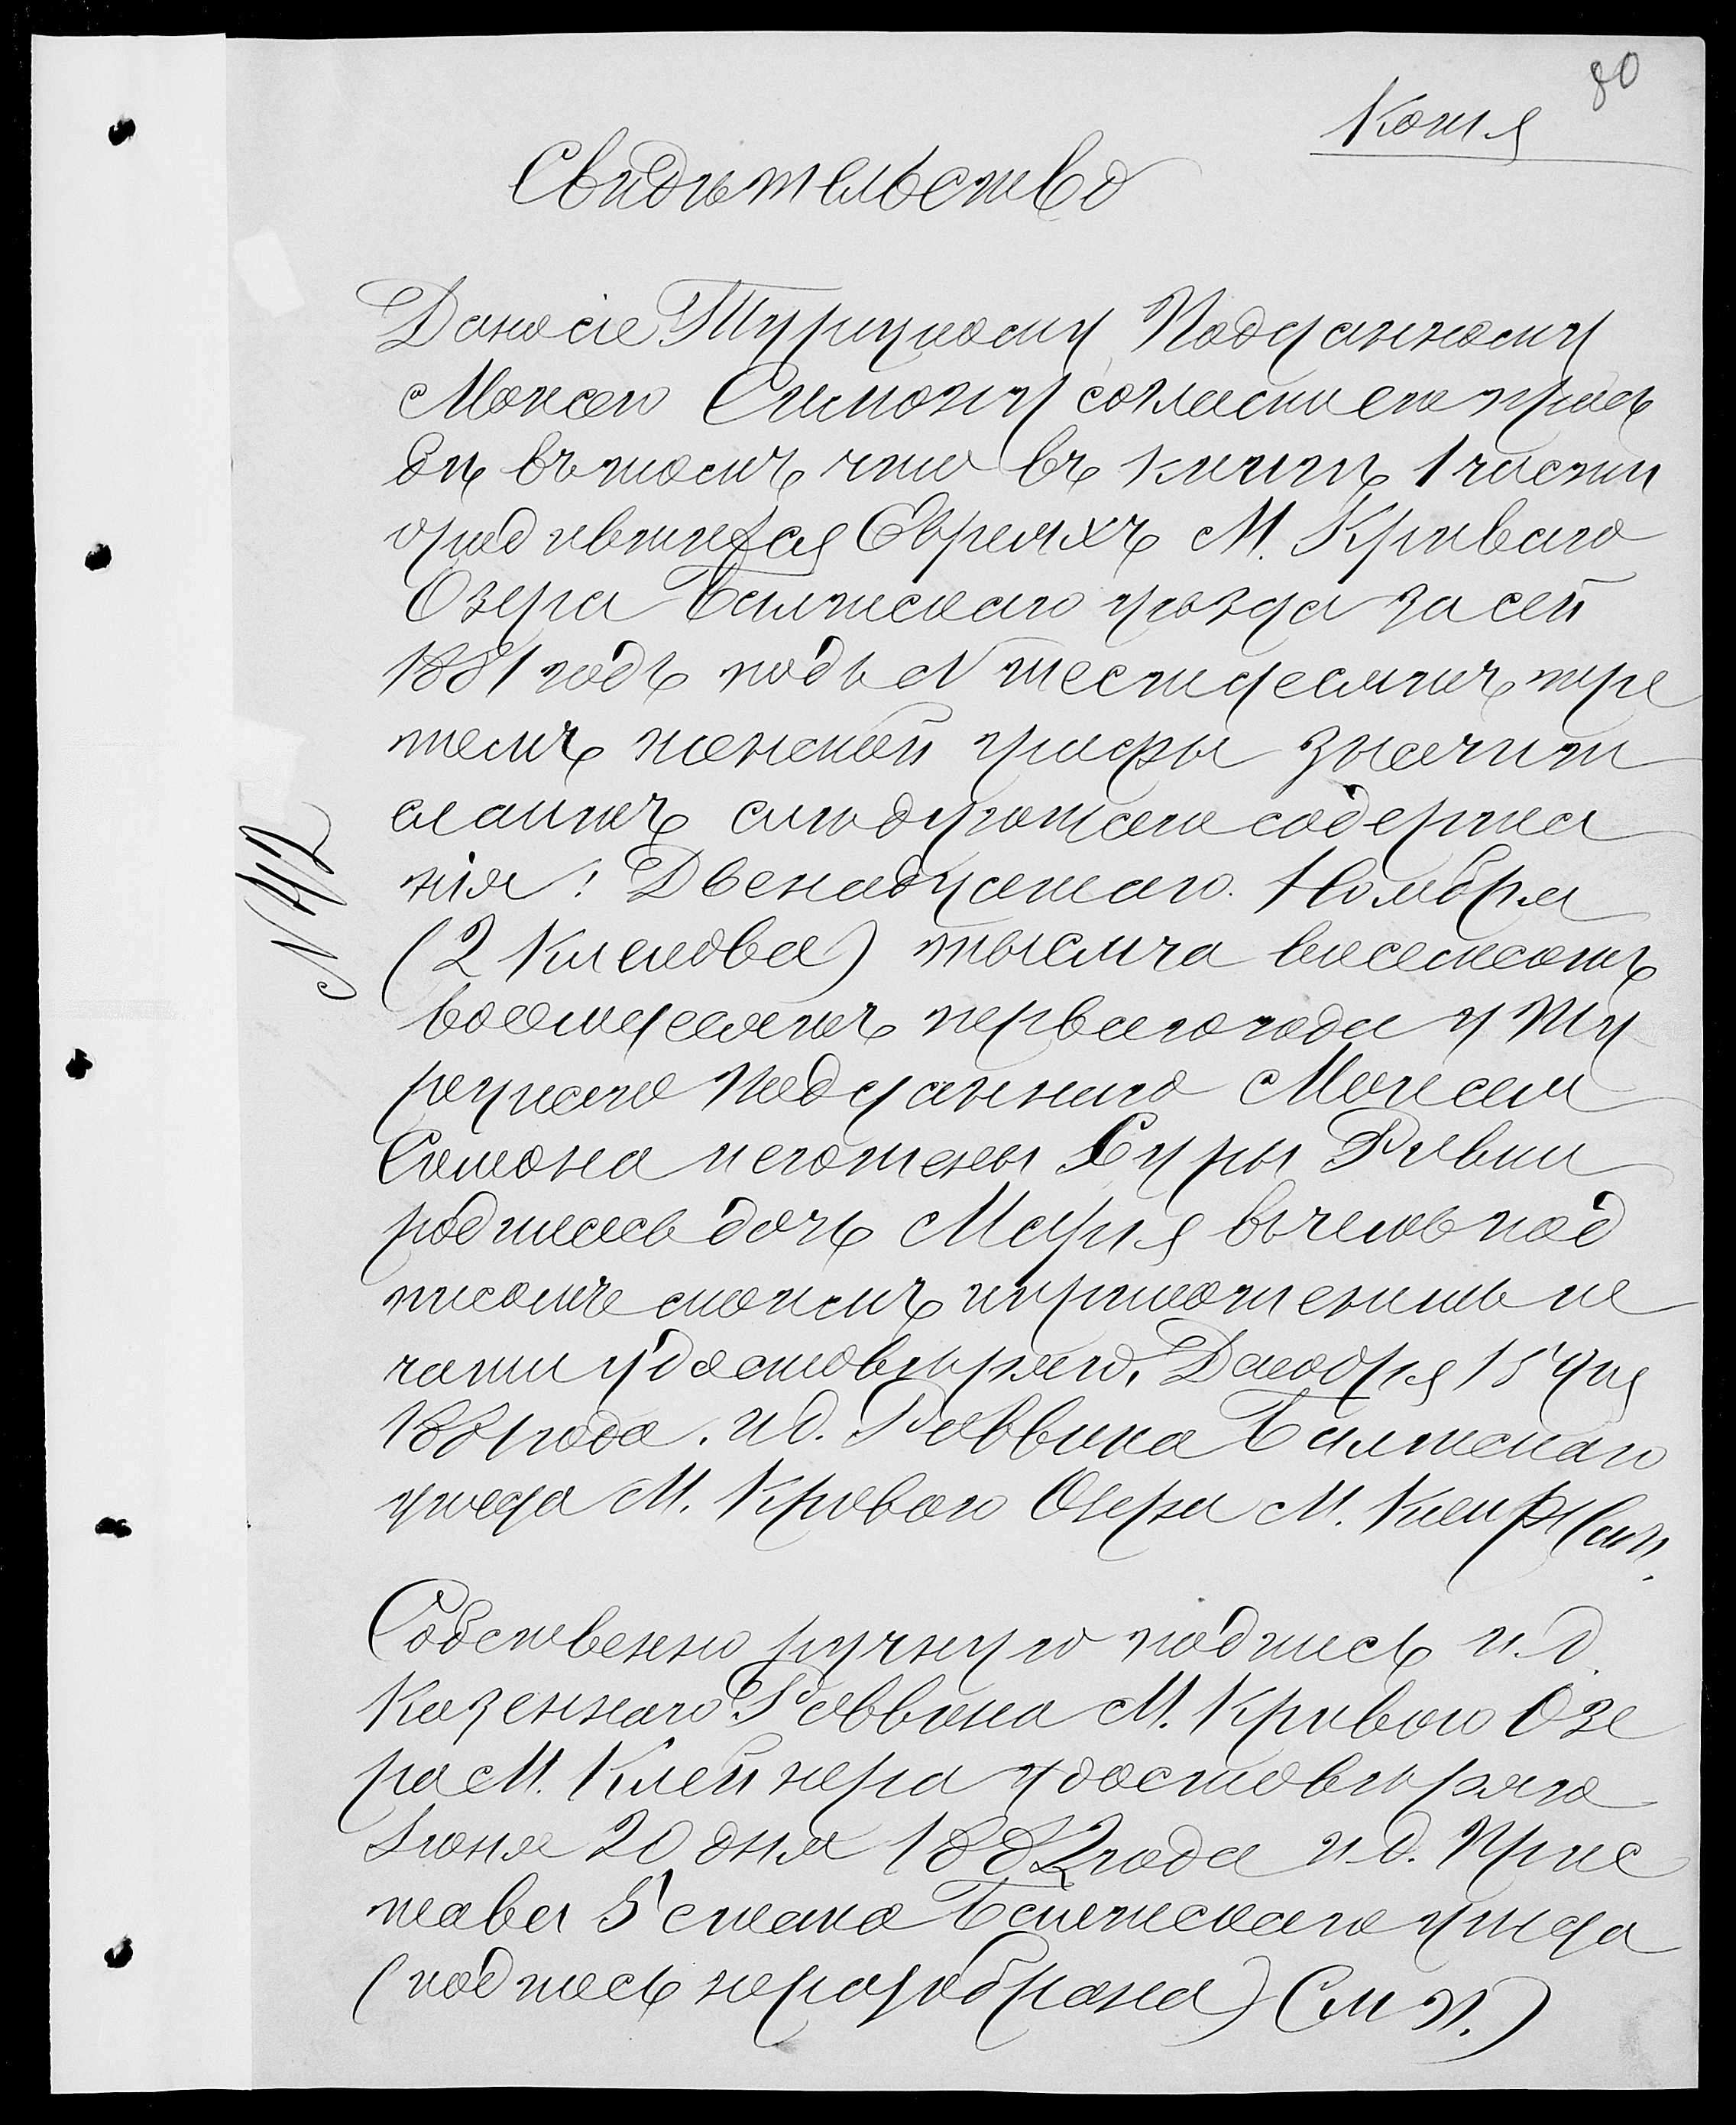 80
Копія
Свидѣтельство
Дано сіе Турецкому Подданному
Моисею Симону согласно его прось
бѣ въ томъ что въ книгѣ 1 части
о родившихся Евреяхъ М. Криваго
Озера Балтскаго уѣзда за сей
1881 годъ подъ N шестдесятъ тре
темъ женской графы значит
ся актъ слѣдующаго содержа
нія: Двенадцатаго Ноября
(2 Кислова) тысяча восемсотъ
восемдесятъ перваго года у Ту
рецкаго Подданнаго Моисея
Симона и его жены Суры Ривки
родилась дочь Марія въ чемъ под
писомъ моимъ и приложеніемъ пе
чати удостовѣряю, Декабря 15 дня
1881 года. И д. Раввина Балтскаго
уѣзда М. Криваго Озера М. Клейнеръ
N 42
Собственно ручную подпись и. д.
Казеннаго Раввина М. Криваго Озе
ра М. Клейнера удостовѣряю
Іюня 20 дня 1882 года и. д. Прис
тава 5 стана Балтскаго уѣзда
(подпись неразобрана) (М П.)